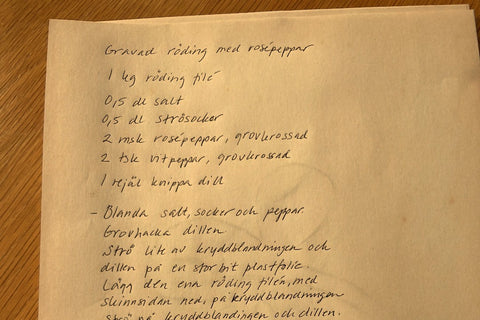 Gravad röding med rosépeppar
1 kg röding filé
0,5 dl salt
0,5 dl strösocker
2 msk rosépeppar, grovkrossad
2 tsk vitpeppar, grovkrossad
1 rejäl knippa dill
- Blanda salt, socker och peppar.
Grovhacka dillen
Strö lite av kryddblandningen och
dillen på en stor bit plastfolie.
Lägg den ena röding filén, med
skinnsidan ned, på kryddblandningen
Strö på kryddblandingen och dillen.